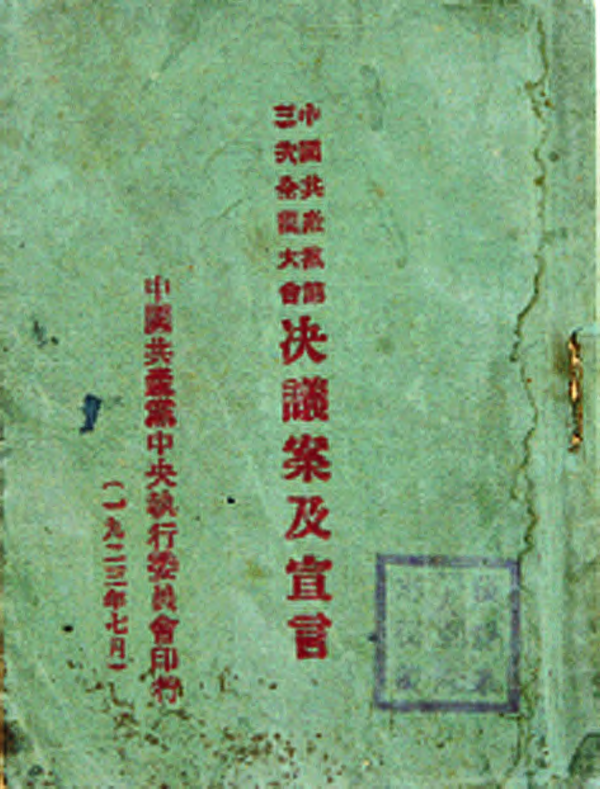 中國共產黨第
三次全國大會
决議案及宣言
中國共產黨中央執行委員會印行
(一九二三年七月)